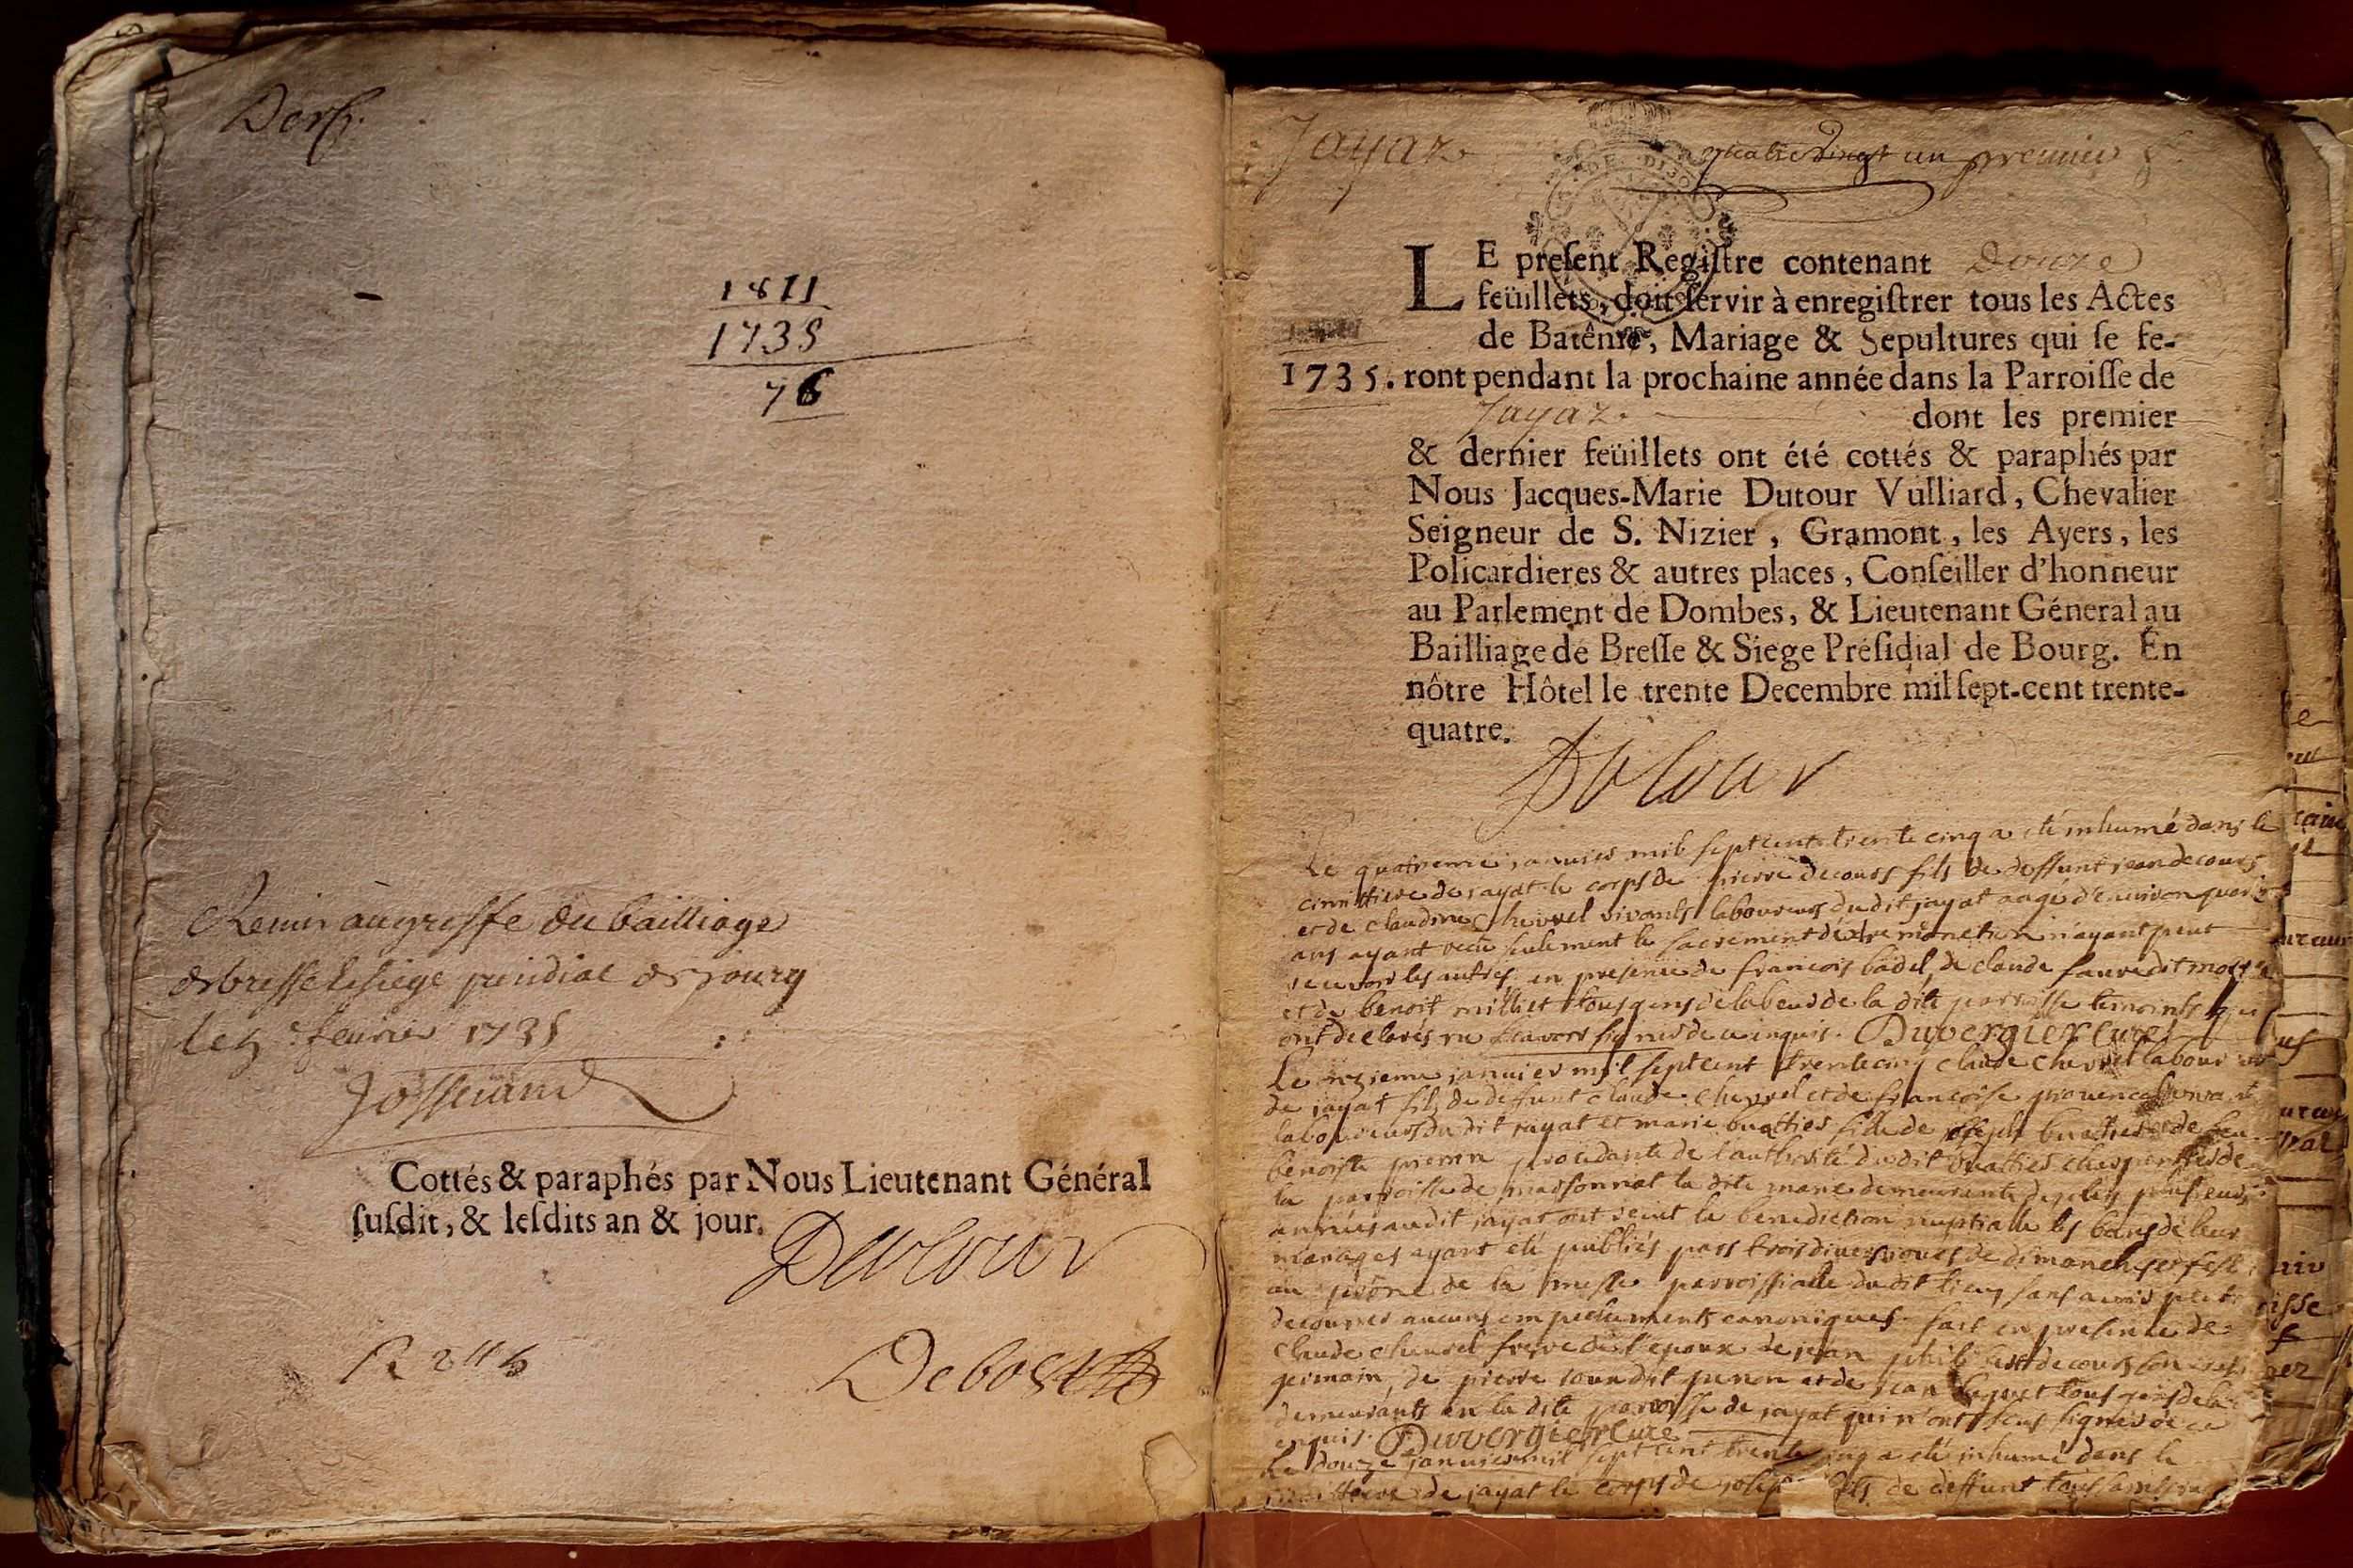 1811
1735
76
Remis au greffe du bailliage
de bresse et siege presidial de bourg
le fevrier 1735
Josserand
Cottés & paraphés par Nous Lieutenant Général
ſuſdit, & leſdits an & jour.
Dutour
Debost
Jayaz
quatre vingt un premier
LE preſent Regiſtre contenant Douze
feüillets, doit ſervir à enregiſtrer tous les Actes
de Batême, Mariage & Sepultures qui ſe fe-
1735. ront pendant la prochaine année dans la Parroiſſe de
Jayaz. dont les premier
& dernier feüillets ont été cottés & paraphés par
Nous Jacques-Marie Dutour Vulliard, Chevalier
Seigneur de S. Nizier, Gramont, les Ayers, les
Policardieres & autres places, Conſeiller d'honneur
au Parlement de Dombes, & Lieutenant Géneral au
Bailliage de Breſſe & Siege Préſidial de Bourg. En
nôtre Hôtel le trente Decembre mil ſept-cent trente-
quatre.
Dutour
Le quatrieme janvier mil sept cent trente cinq a eté inhumé dans le
cimittiere de jayat le corps de pierre decours fils de deffunt jean decours
et de claudine Chevrel vivants laboureurs dudit jayat aagé d'environ
ans ayant receu seulement le sacrement d'extreme onction n'ayant peut
recevoir les autres en presence de francois badel, de claude favre dit
et de benoit milliet tous gens de labeur de la dite parroisse temoints qui
ont declarés ne scavoir signer de ce enquis. Duvergier curé
Le onzieme janvier mil sept cent trente cinq claude chevrel laboureur
de jayat fils de deffunt claude chevrel et de francoise provencal vivants
laboureurs du dit jayat et marie buathier fille de joseph buathier et de feu
benoiste procedante de l'authorité du dit buathier
la parroisse de marsonnat la dite marie demeurante depuis plusieurs
années audit jayat ont receut la benediction nuptialle les bans de leur
mariages ayant eté publiés pars trois divers jours de dimanches et feste
au prône de la messe parroissialle du dit lieu sans avoir peut
decouvrir aucuns empechements canoniques. fait en presence de
claude chevrel frere de l'epoux de jean philibert decours son
germain, de pierre dit et de jean tous gens de
demeurants en la dite parroisse de jayat qui n'ont sceus signer de ce
enquis. Duvergier curé
Le douze janvier mil sept cent trente cinq a eté inhumé dans le
cimittiere de jayat le corps de joseph fils de deffunt